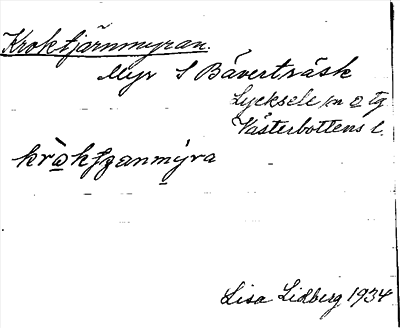 Kroktjärnmyran.
Myr S Bäverträsk
Lycksele sn o tg
Västerbottens l.
kròkʃʒanmýra
Lisa Lidberg 1934